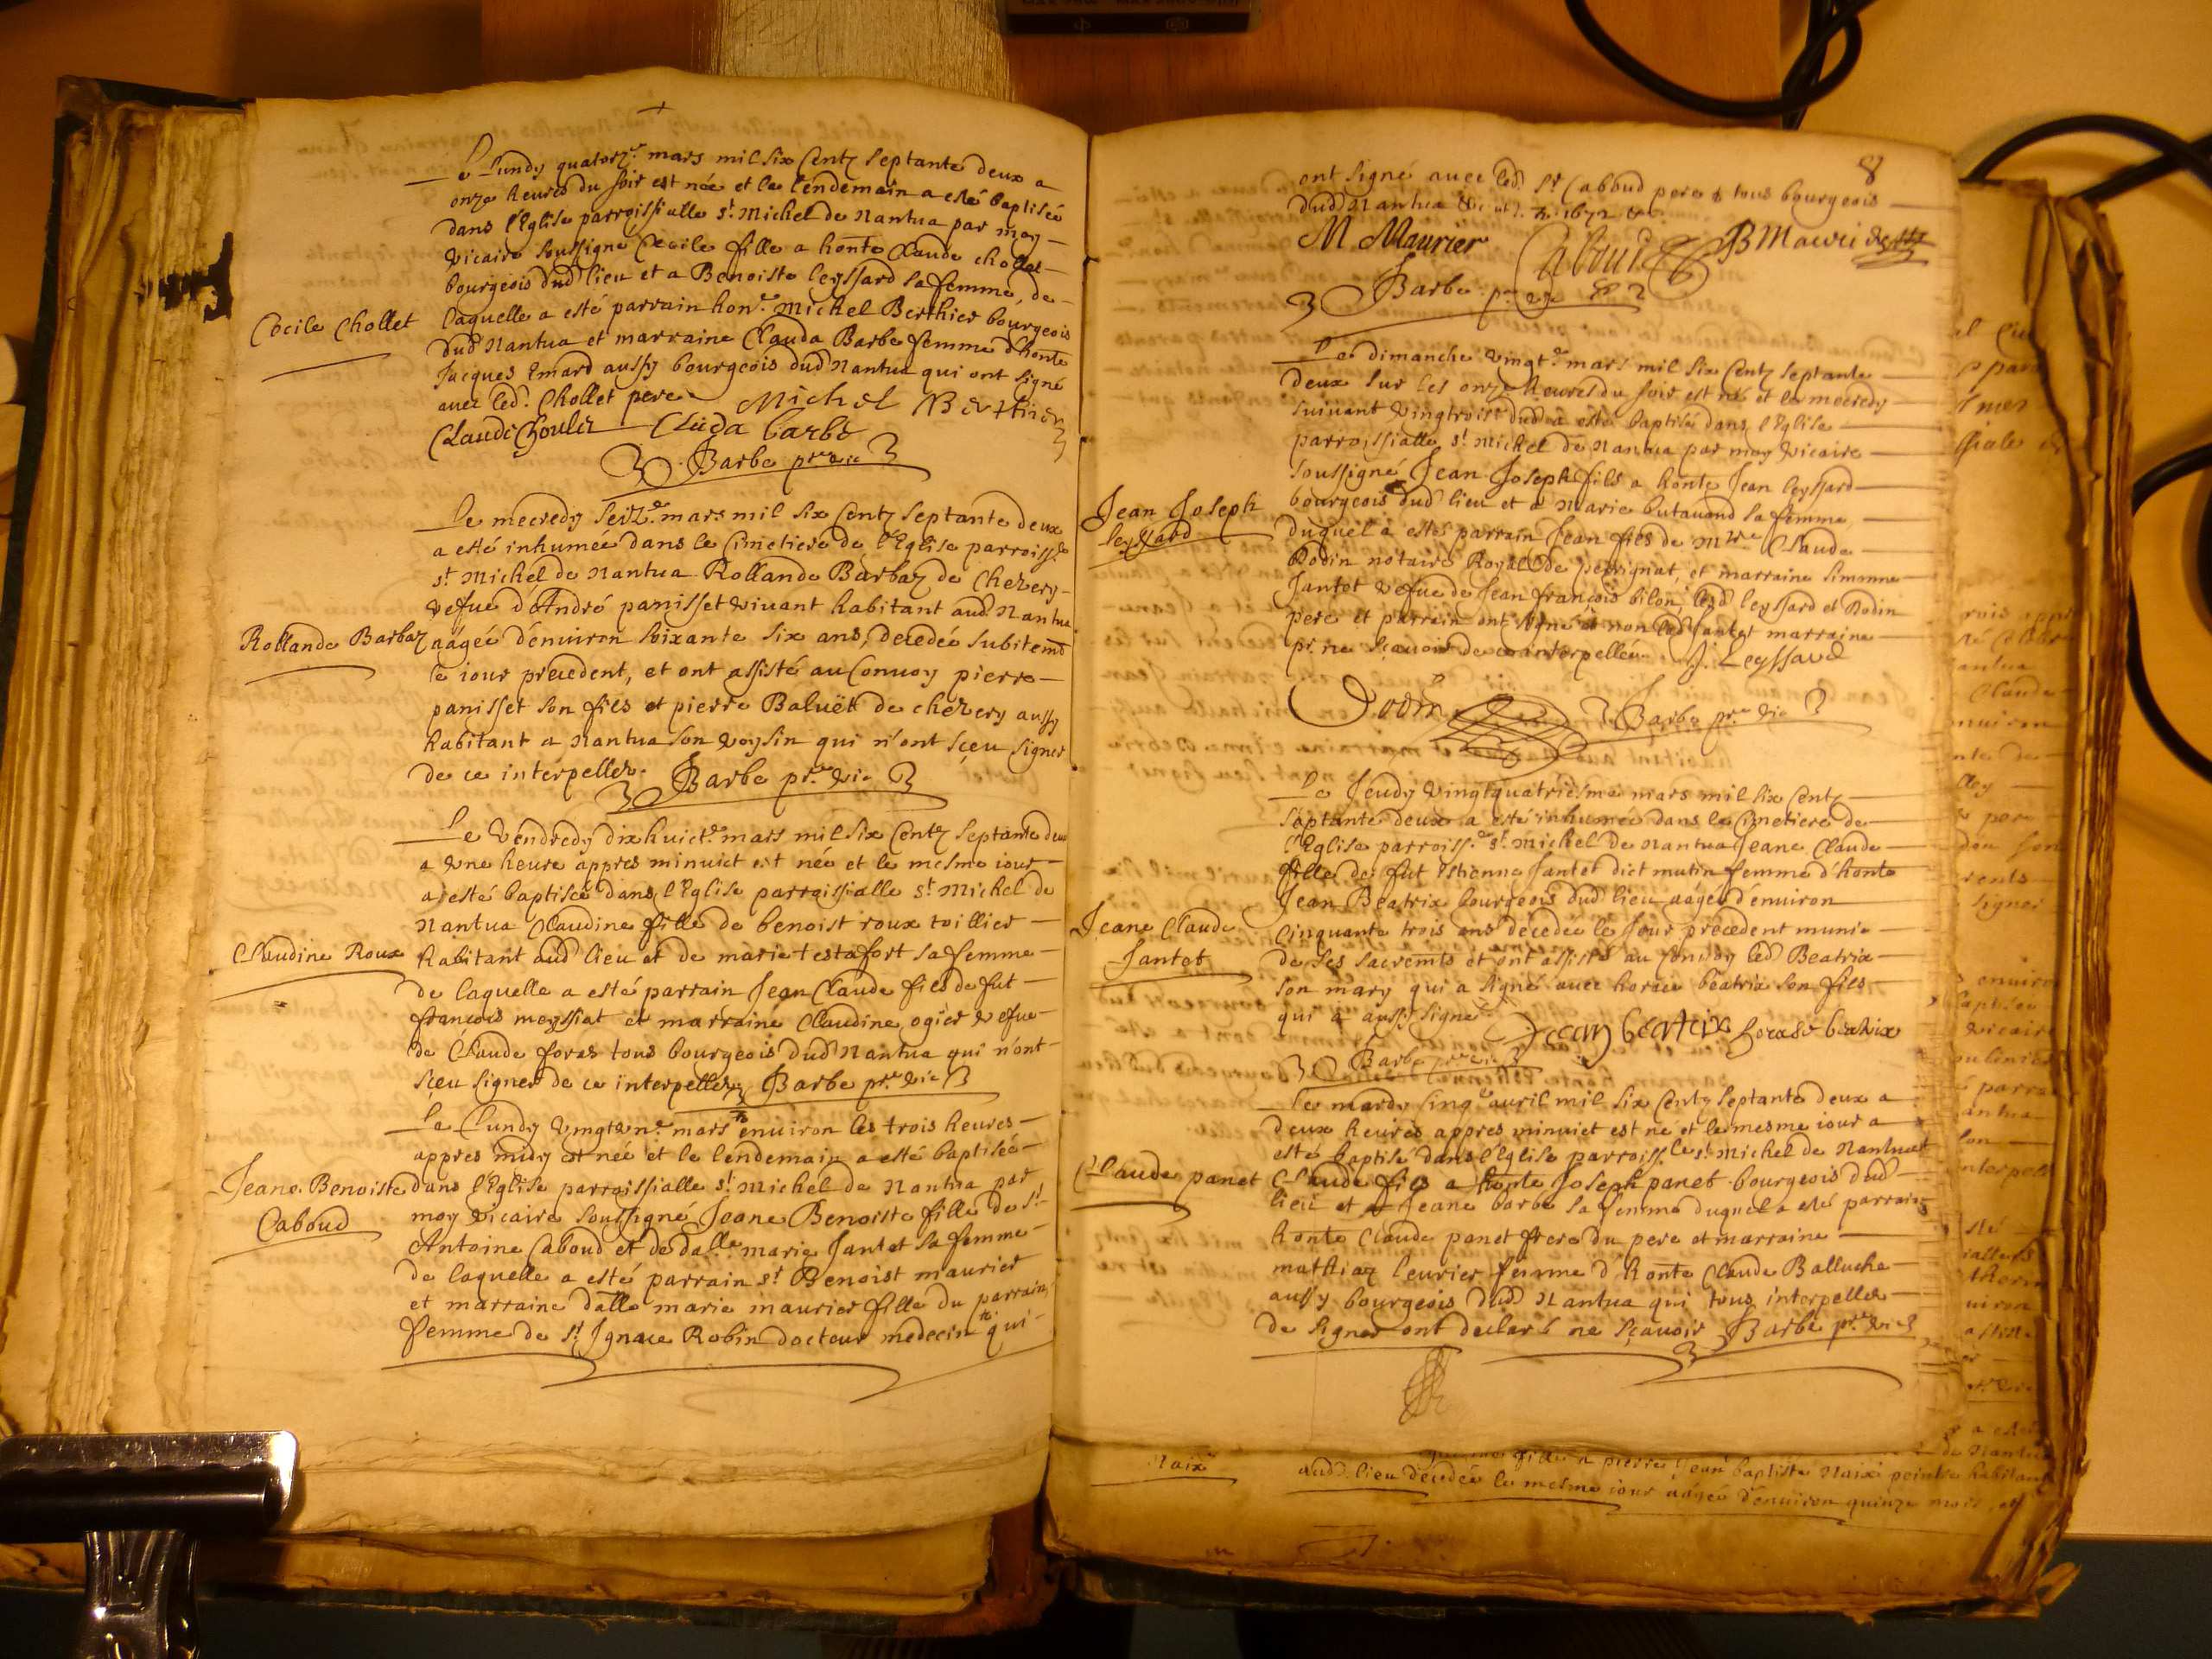 Le Lundy quatorz.e mars mil six Centz septante deux a
onze heures du soir est née et le lendemain a esté baptisée
dans l'Eglise parroissialle st. Michel de Nantua par moy
vicaire soussigné Cecile fille a honte Claude chollet
bourgeois dud lieu et a Benoiste leyssard sa femme, de
Cecile Chollet
laquelle a esté parrain hon.e Michel Berthier bourgeois
dud Nantua et marraine Clauda Barbe femme d'honte
Jacques Emard aussy bourgeois dud Nantua qui ont signé
avec led. Chollet pere
Michel Berthier
Claude Cholet Clauda barbe
Barbe pre vic
Le mecredy seiz.e mars mil six Centz septante deux
a esté inhumée dans le Cimetiere de l'Eglise parroiss.e
st. Michel de Nantua Rollande Barbaz de Chezery
vefue d'André panisset viuant habitant aud. Nantua
Rollande Barbaz
aagée d'enuiron soixante six ans, decedée subitemt
le iour precedent, et ont assisté au Conuoy pierre
panisset son fils et pierre Baluët de chezery aussy
habitant a Nantua son voysin qui n'ont sçeu signer
de ce interpellez. Barbe pr.e vic
Le vendredy dixhuict.e mars mil six Centz septante deux
a vne heure appres minuict est née et le mesme iour
a esté baptisée dans l'Eglise parroissialle st. Michel de
Nantua Claudine fille de benoist roux toillier
Claudine Roux
habitant aud lieu et de marie testafort sa femme
de laquelle a esté parrain Jean Claude fils de fut
françois meyssiat et marraine Claudine ogier vefue
de Claude foras tous bourgeois dud Nantua qui n'ont
sçeu signer de ce interpellez Barbe pr.e vic
Le Lundy vingtvn.e mars enuiron les trois heures
appres midy est née et le lendemain a esté baptisée
Jeane Benoiste
Caboud
dans l'Eglise parroissialle st. Michel de Nantua par
moy vicaire soussigné Jeane Benoiste fille de sr.
Antoine Caboud et de dalle marie Jantet sa femme
de laquelle a esté parrain sr. Benoist maurier
et marraine dalle marie maurier fille du parrain,
femme de sr. Ignace Robin docteur medecin qui
8
ont signé auec led. sr. Caboud pere tous bourgeois
dud Nantua 1672
M Maurier Caboud B Maurier
Barbe pre vic
Le dimanche vingt.e mars mil six Centz septante
deux sur les onze heures du soir est né et le mecredy
suiuant vingtrois dud a esté baptisé dans l'Eglise
parroissialle st. Michel de Nantua par moy vicaire
soussigné Jean Joseph fils a honte Jean leyssard
Jean Joseph
leyssard
bourgeois dud lieu et a Marie butauand sa femme
duquel a estés parrain Jean fils de Mtre Claude
Dodin notaire Royal de perrignat, et marraine simonne
Jantet vefue de Jean françois bilon, lesd leyssard et Dodin
pere et parrain ont signé et non lad Jantet marraine
pr. ne sçauoir de ce interpellée. J. Leyssard
Dodin Barbe pr.e vic
Le Jeudy vingtquatriesme mars mil six Centz
septante deux a esté inhumée dans le Cimetiere de
l'Eglise parroiss.e st. michel de Nantua Jeane Claude
fille de fut Estienne Jantet dict mutin femme d'honte
Jean Beatrix bourgeois dud lieu aagée d'enuiron
Jeane Claude
Jantet
Cinquante trois ans decedée le Jour precedent munie
de ses sacremts et ont assisté au Conuoy led Beatrix
son mary qui a signé auec horace beatrix son fils
qui a aussy signé Jean beatrix horase beatrix
Barbe pre vic
Le mardy Cinq.e auril mil six Centz septante deux a
deux heures appres minuict est né et le mesme iour a
esté baptisé dans l'Eglise parroiss.le st. Michel de Nantua
Claude panet
Claude fils a honte Joseph panet bourgeois dud
lieu et a Jeane barbe sa femme duquel a esté parrain
honte Claude panet frere du pere et marraine
mathiaz leurier femme d'honte Claude Balluche
aussy bourgeois dud Nantua qui tous interpellez
de signer ont declaré ne sçauoir Barbe pr.e vic
fille a pierre Jean baptiste Naix peintre habitant
Naix
aud. lieu decedée le mesme iour aagée d'enuiron quinze mois, et